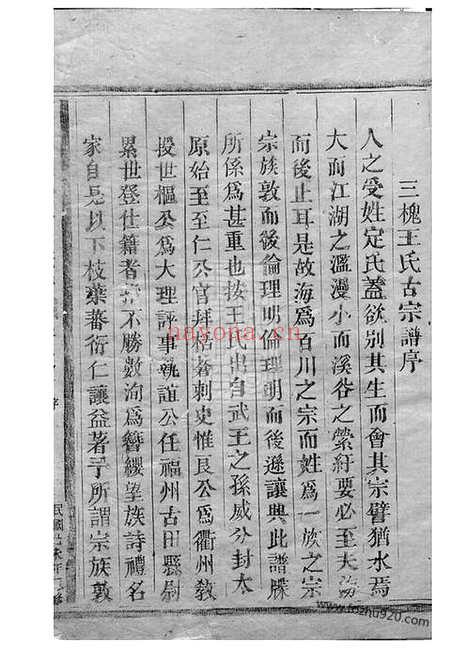 三槐王氏古宗譜序
人之受姓定氏蓋欲別其生而會其宗譬猶水焉
大而江湖之濫漫小而溪谷之縈紆要必至大海
而後止耳是故海為百川之宗而姓為一族之宗
宗族敦而後倫理明倫理明而後遜讓興此譜牒
所係為甚重也按王氏出自武王之孫威分封太
原始至至仁公官拜梧州刺史惟良公為衢州教
授世樞公為大理評事執誼公任福州古田縣尉
累世登仕籍者指不勝數洵為簪纓望族詩禮名
家自是以下枝葉蕃衍仁讓益著予所謂宗族敦
序
nayona.cn
www.fozhu920.com